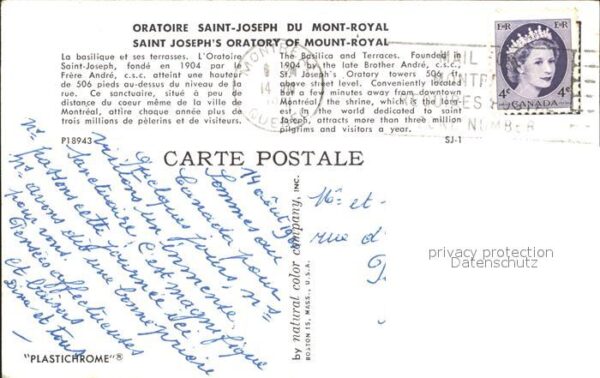 ORATOIRE SAINT-JOSEPH DU MONT-ROYAL
SAINT JOSEPH'S ORATORY OF MOUNT-ROYAL
La basilique et ses terrasses. L'Oratoire
Saint-Joseph, fondé en 1904 par le
Frère André, c.s.c. atteint une hauteur
de 506 pieds au-dessus du niveau de la
rue. Ce sanctuaire, situé à peu de
distance du coeur même de la ville de
Montréal, attire chaque année plus de
trois millions de pèlerins et de visiteurs.
The Basilica and Terraces. Founded in
1904 by the late Brother André, c.s.c.,
St. Joseph's Oratory towers 506 ft.
above street level. Conveniently located
but a few minutes away from downtown
Montréal the shrine, which is the
est in the world dedicated to saint
Joseph, attracts more than three million
pilgrims and visitors a year.
P18943
SJ-1
MONTREAL
14
QUEBEC
NUMBER
E R
4¢ 4¢
CANADA
CARTE POSTALE
14 août
Sommes au
Canada pour
quelques jours ns
visitons un immense
Sanctuaire c'est magnifique
Ns passons cette journée ici
ns avons dit une bonne prière
pour vous.
Pensées affectueuses
et baisers
à tous
by natural color company, INC.
BOSTON 15, MASS., U.S.A.
Me et
rue d
privacy protection
Datenschutz
"PLASTICHROME"®